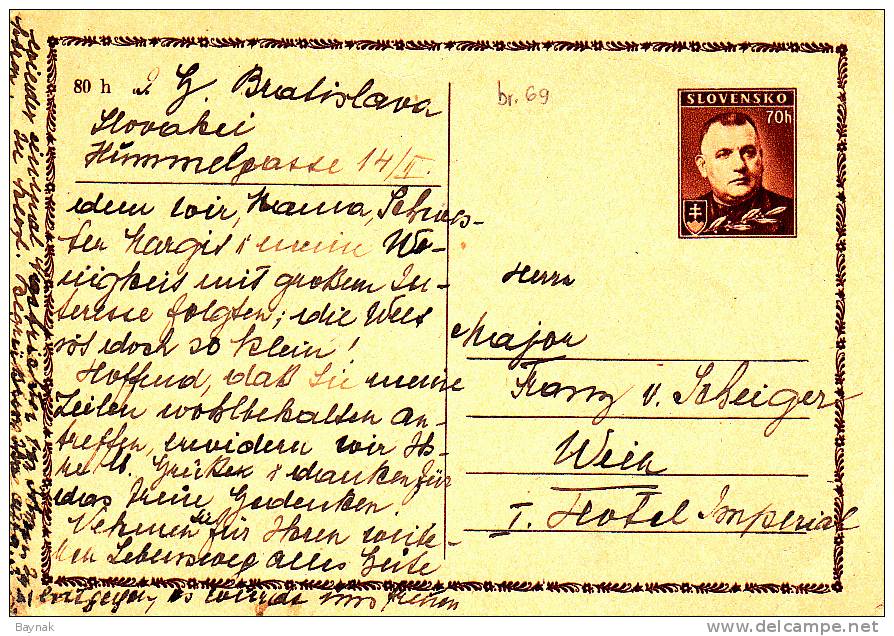 80 h
G. Bratislava
Slovakei
Hummelgasse 14/II.
dem wir, Mama, Schwes-
ter Margit & meine We-
nigkeit mit großem In-
teresse folgten; die Welt
ist doch so klein!
Hoffend, daß Sie meine
Zeilen wohlbehalten an-
treffen, erwidern wir Ih-
re Grüßen & danken für
das freie Gedenken.
Nehmen Sie für Ihren weite-
ren Lebensweg alles Gute
entgegen, es würde uns freuen
wieder einmal
br. 69
SLOVENSKO
70h
Herrn
Major
Franz v. Scheiger
Wien
I. Hotel Imperial
Baynak
www.delcampe.net